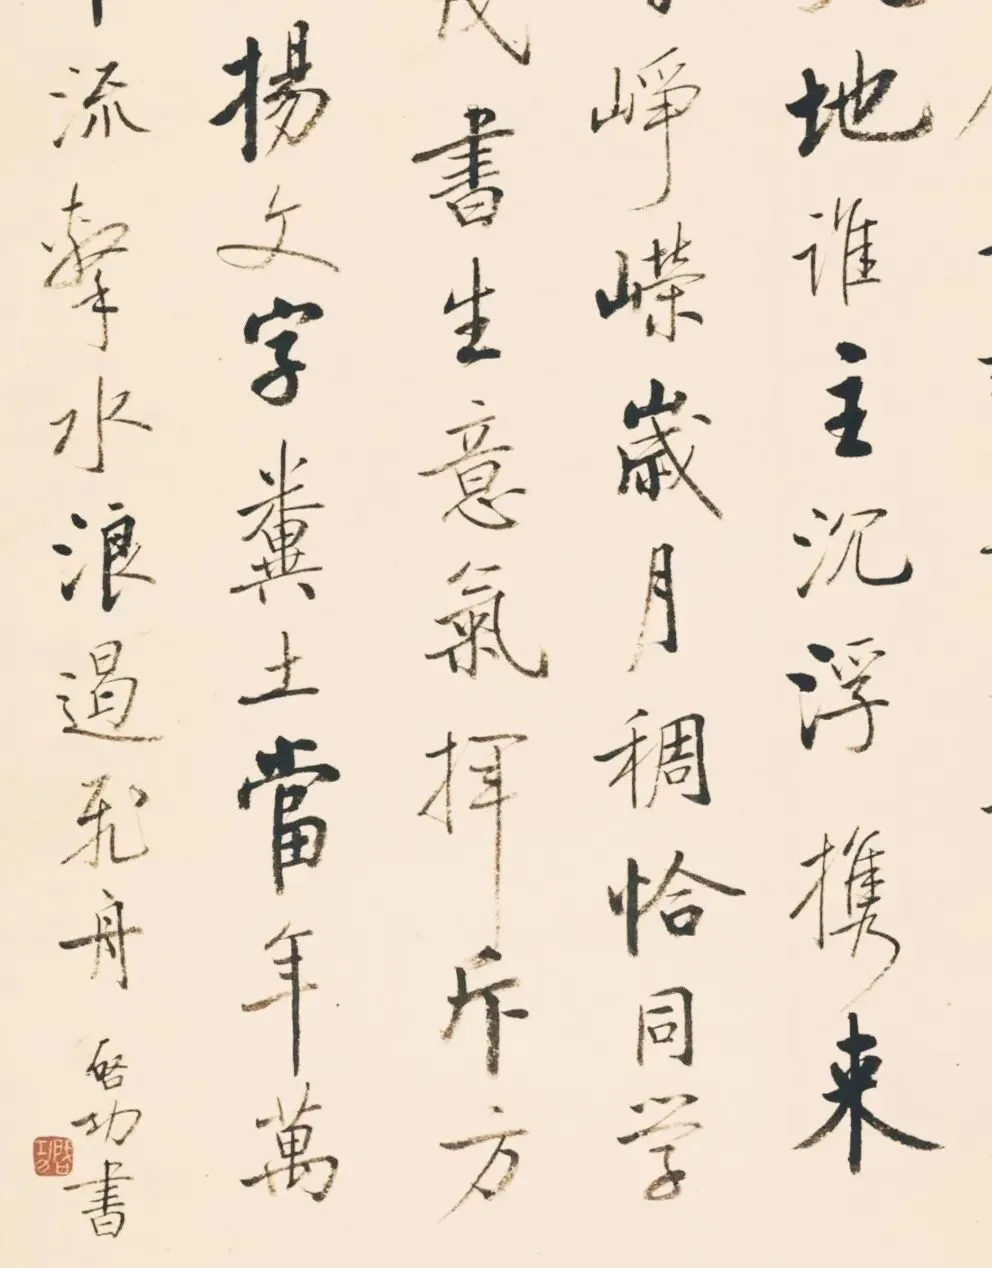 地谁主沉浮携来
峥嵘歲月稠恰同学
茂書生意氣揮斥方
揚文字糞土當年萬
流擊水浪遏飛舟
啓功書
啓功